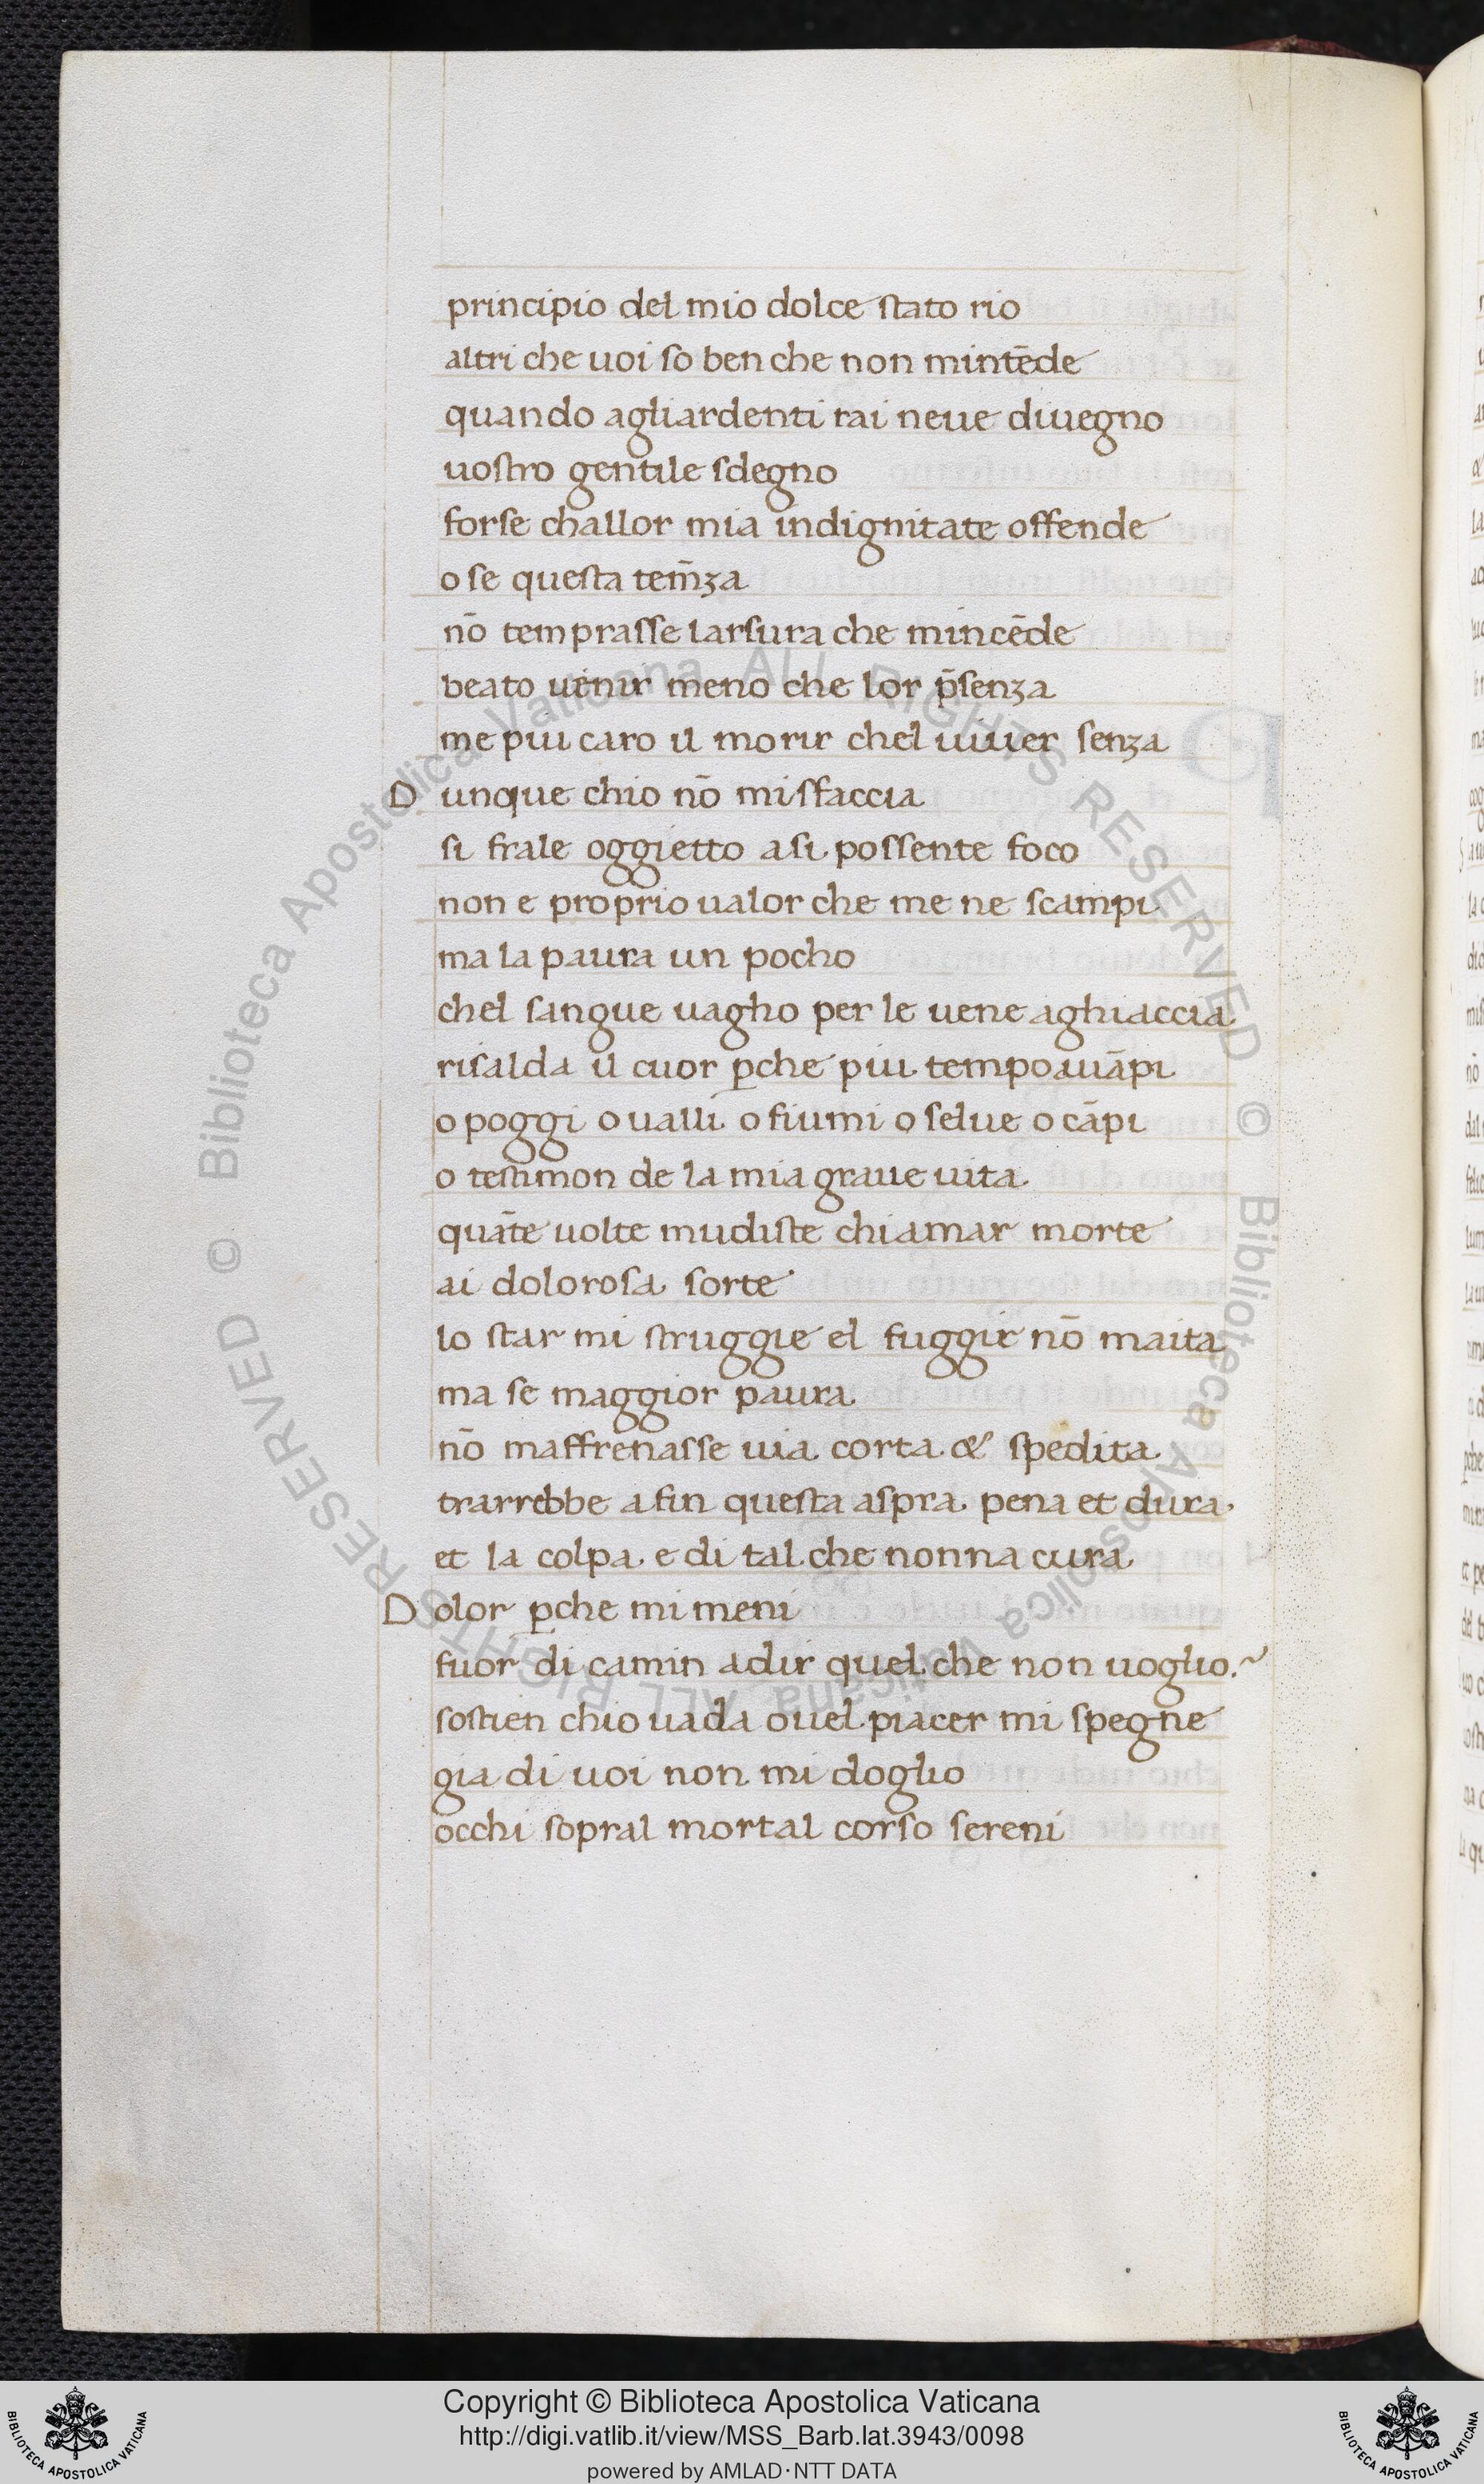 principio del mio dolce stato rio
altri che uoi so ben che non mintēde
quando agliardenti rai neue diuegno
uostro gentile sdegno
forse challor mia indignitate offende
o se questa tem̄za
nō temprasse larsura che mincēde
beato uenir meno che lor p̄senza
me piu caro il morir chel uiuer senza
D unque chio nō misfaccia
si frale oggietto a si possente foco
non e proprio ualor che me ne scampi
ma la paura un pocho
chel sangue uagho per le uene aghiaccia
risalda il cuor ꝑche piu tempo auāpi
o poggi o ualli o fiumi o selue o cāpi
o testimon de la mia graue uita
quāte uolte mudiste chiamar morte
ai dolorosa sorte
lo star mi struggie el fuggir nō maita
ma se maggior paura
nō maffrenasse uia corta & spedita
trarrebbe a fin questa aspra pena et dura
et la colpa e di tal che nonna cura
D olor ꝑche mi meni
fuor di camin adir quel che non uoglio.~
sostien chio uada ouel piacer mi spegne
gia di uoi non mi doglio
occhi sopral mortal corso sereni
© Biblioteca Apostolica Vaticana ALL RIGHTS RESERVED © Biblioteca Apostolica Vaticana ALL RIGHTS RESERVED
Copyright © Biblioteca Apostolica Vaticana
http://digi.vatlib.it/view/MSS_Barb.lat.3943/0098
powered by AMLAD·NTT DATA
BIBLIOTECA APOSTOLICA VATICANA
BIBLIOTECA APOSTOLICA VATICANA